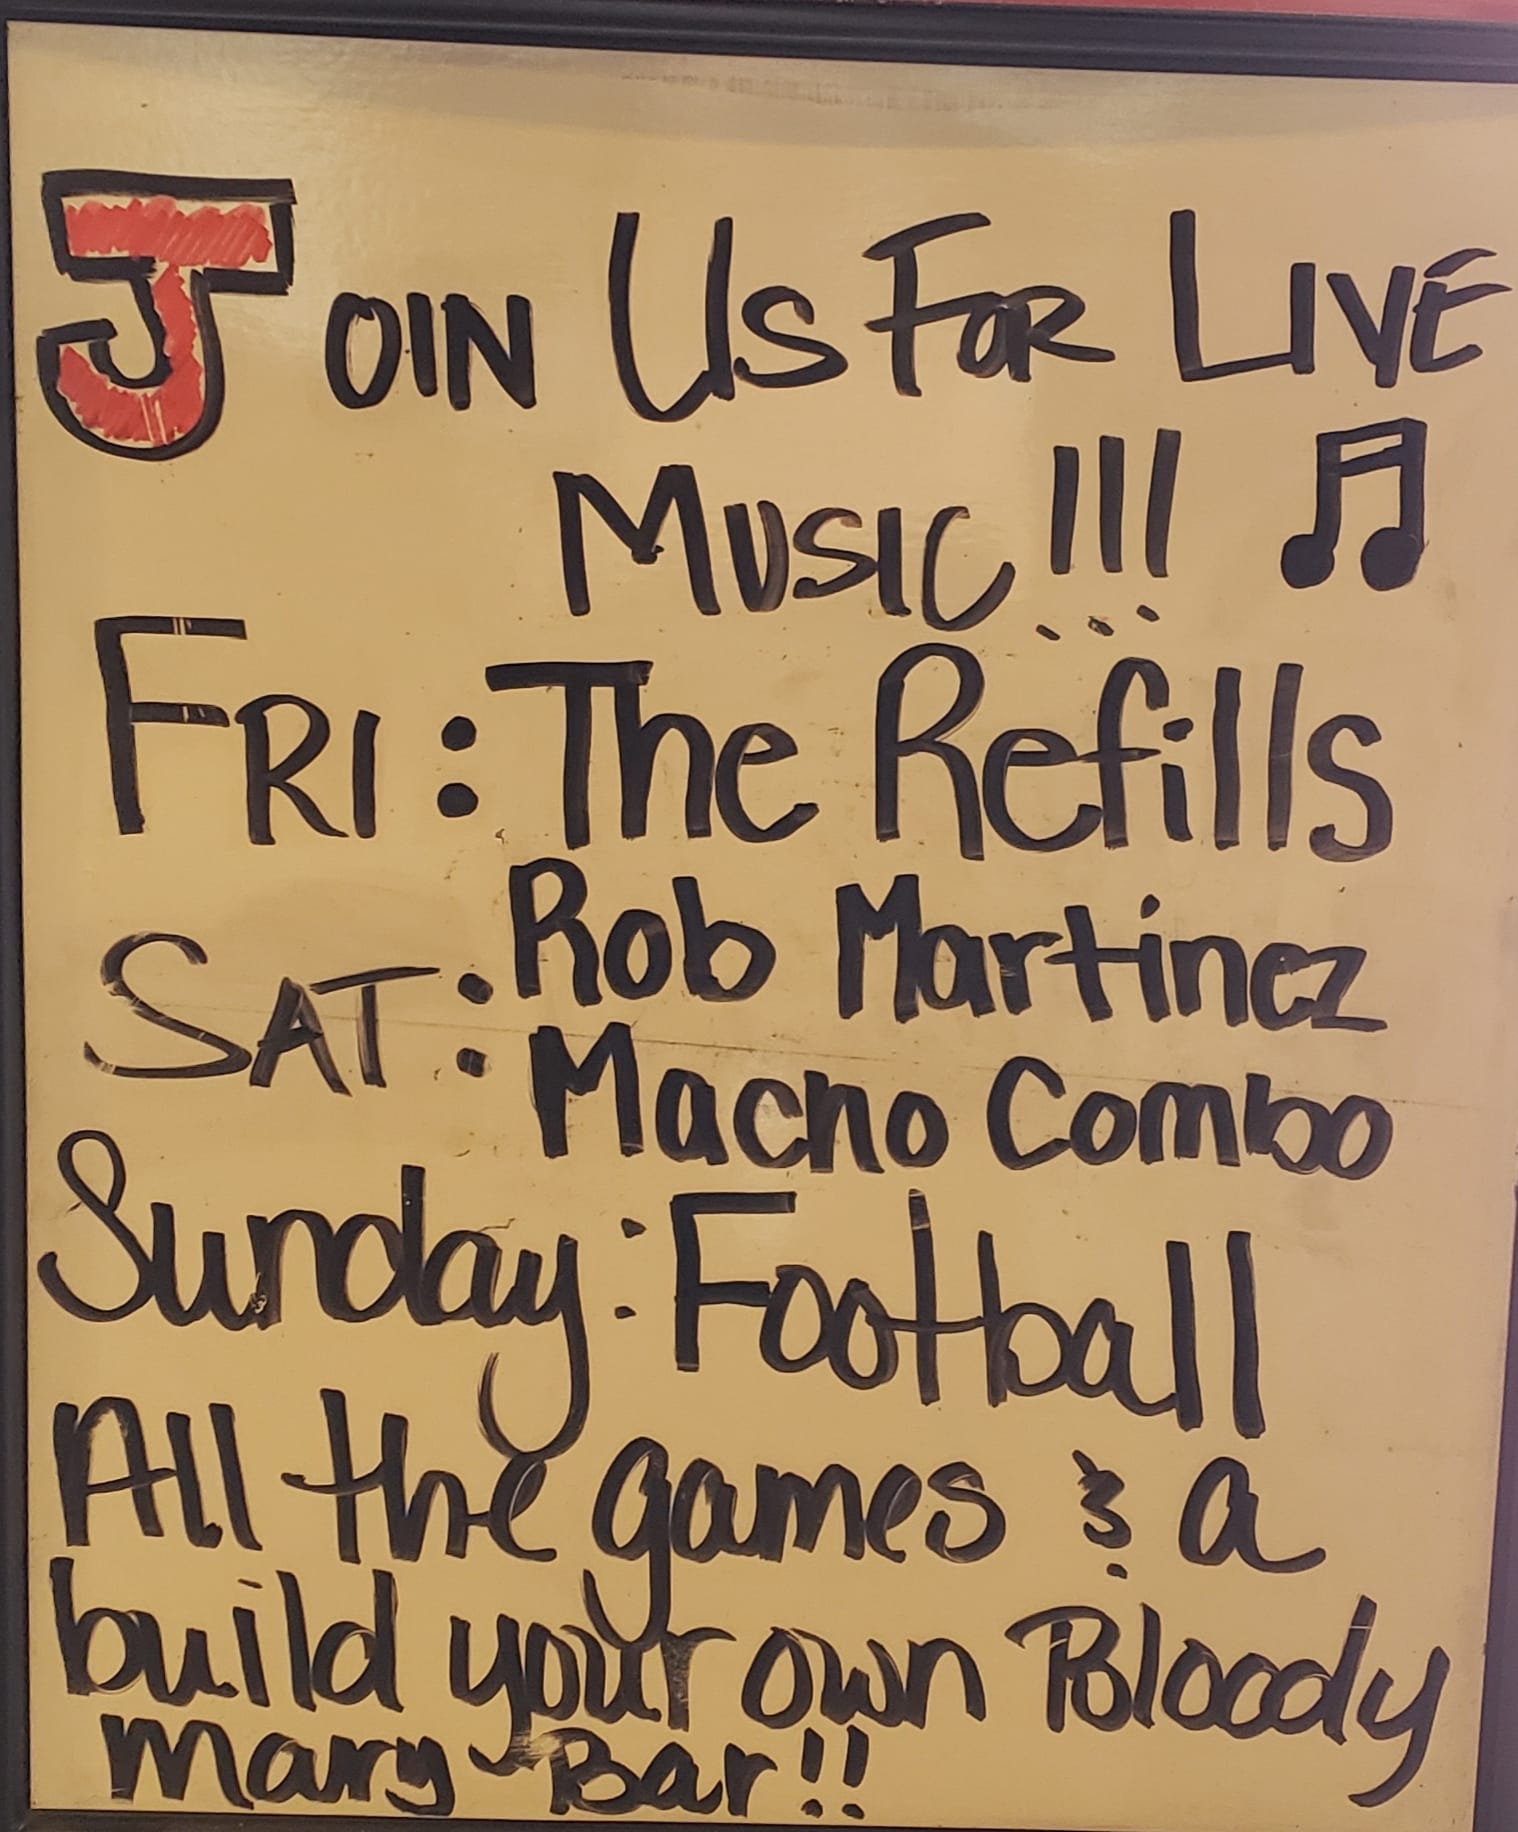 JOIN US FOR LIVE
MUSIC!!!
FRI: The Refills
SAT: Rob Martinez
Macho Combo
Sunday: Football
All the games & a
build your own Bloody
Mary Bar!!